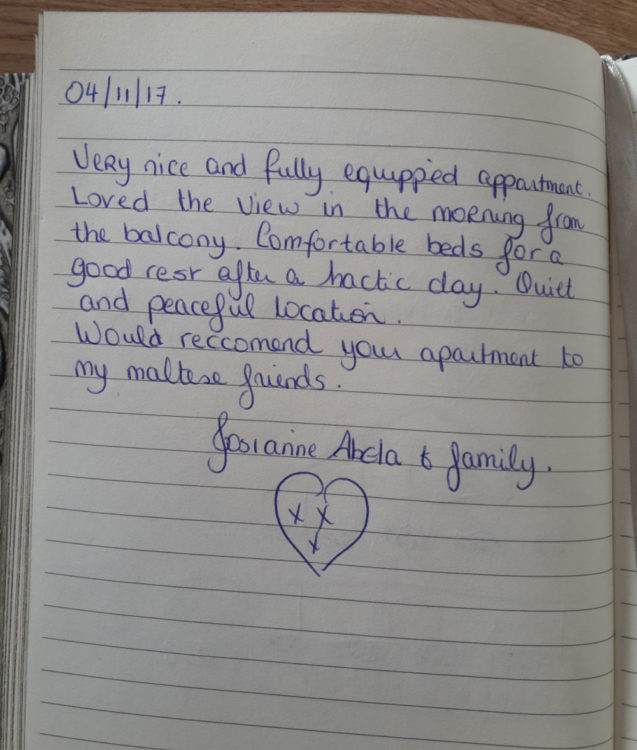 04/11/17.
Very nice and fully equipped appartment.
Loved the view in the morning from
the balcony. Comfortable beds for a
good rest after a hactic day. Quiet
and peaceful location.
Would reccomend your apartment to
my maltese friends.
Josianne Abela & family.
x x
x